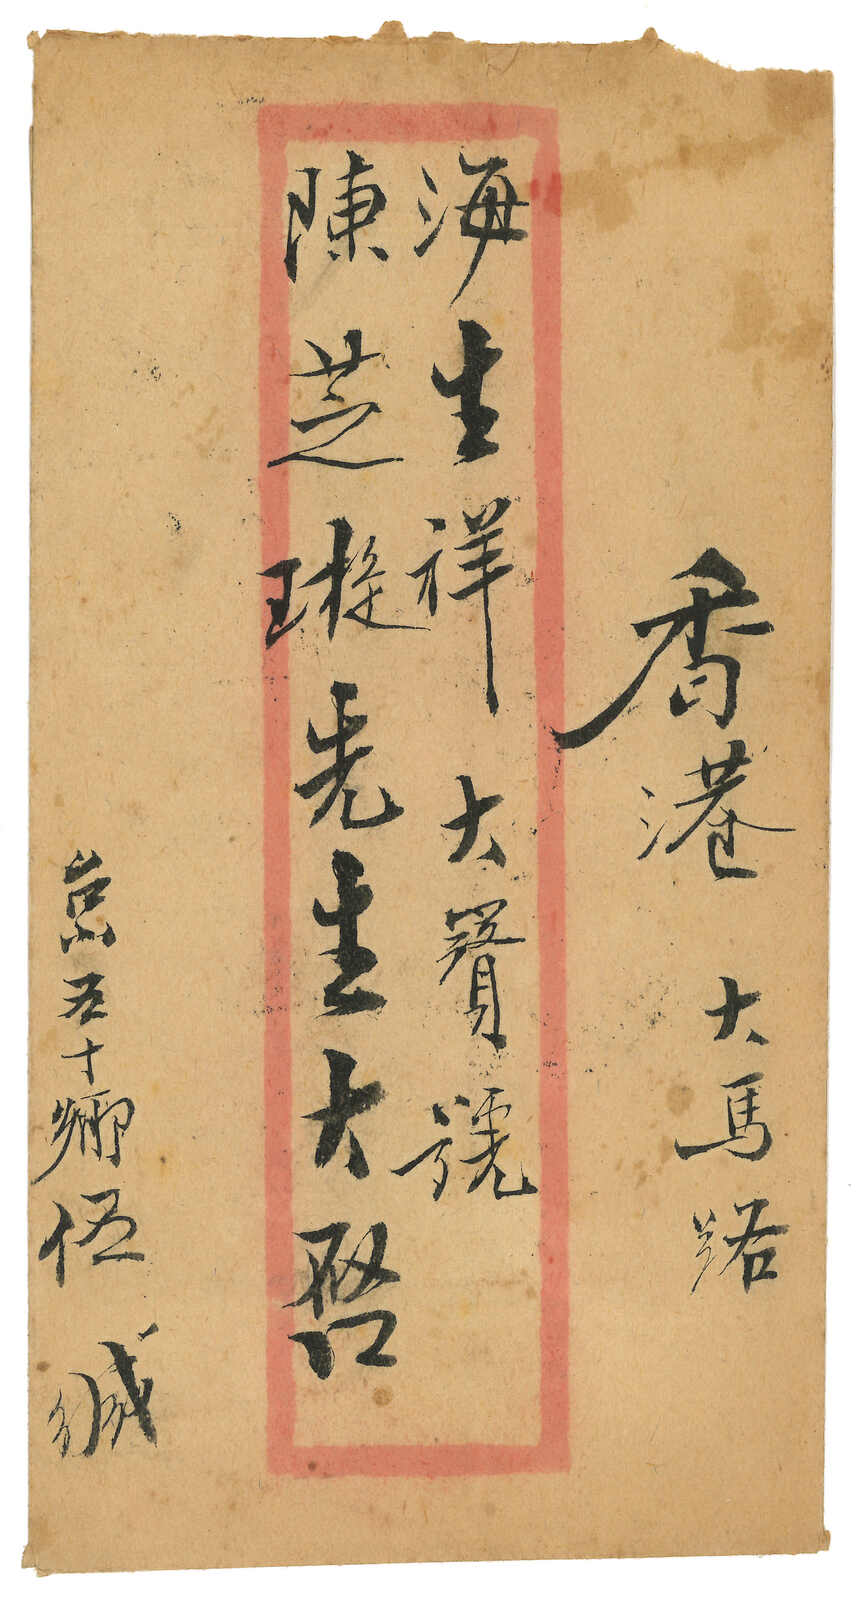 香港 大馬路
海生祥 大寶號
陳芝璇先生大啓
五十鄉伍緘